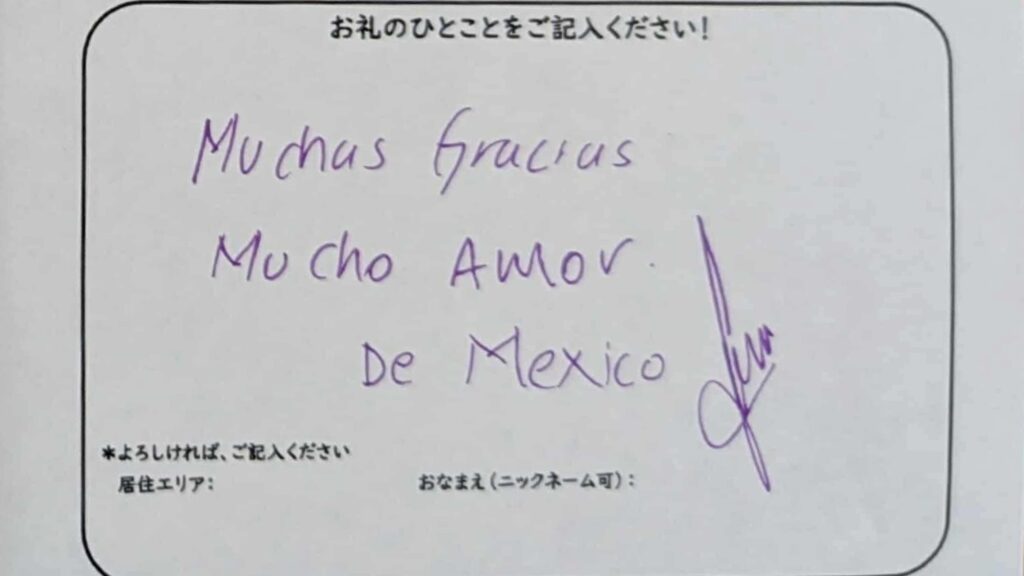 お礼のひとことをご記入ください!
Muchas Gracias
Mucho Amor.
De Mexico
*よろしければ、ご記入ください
居住エリア: おなまえ(ニックネーム可):